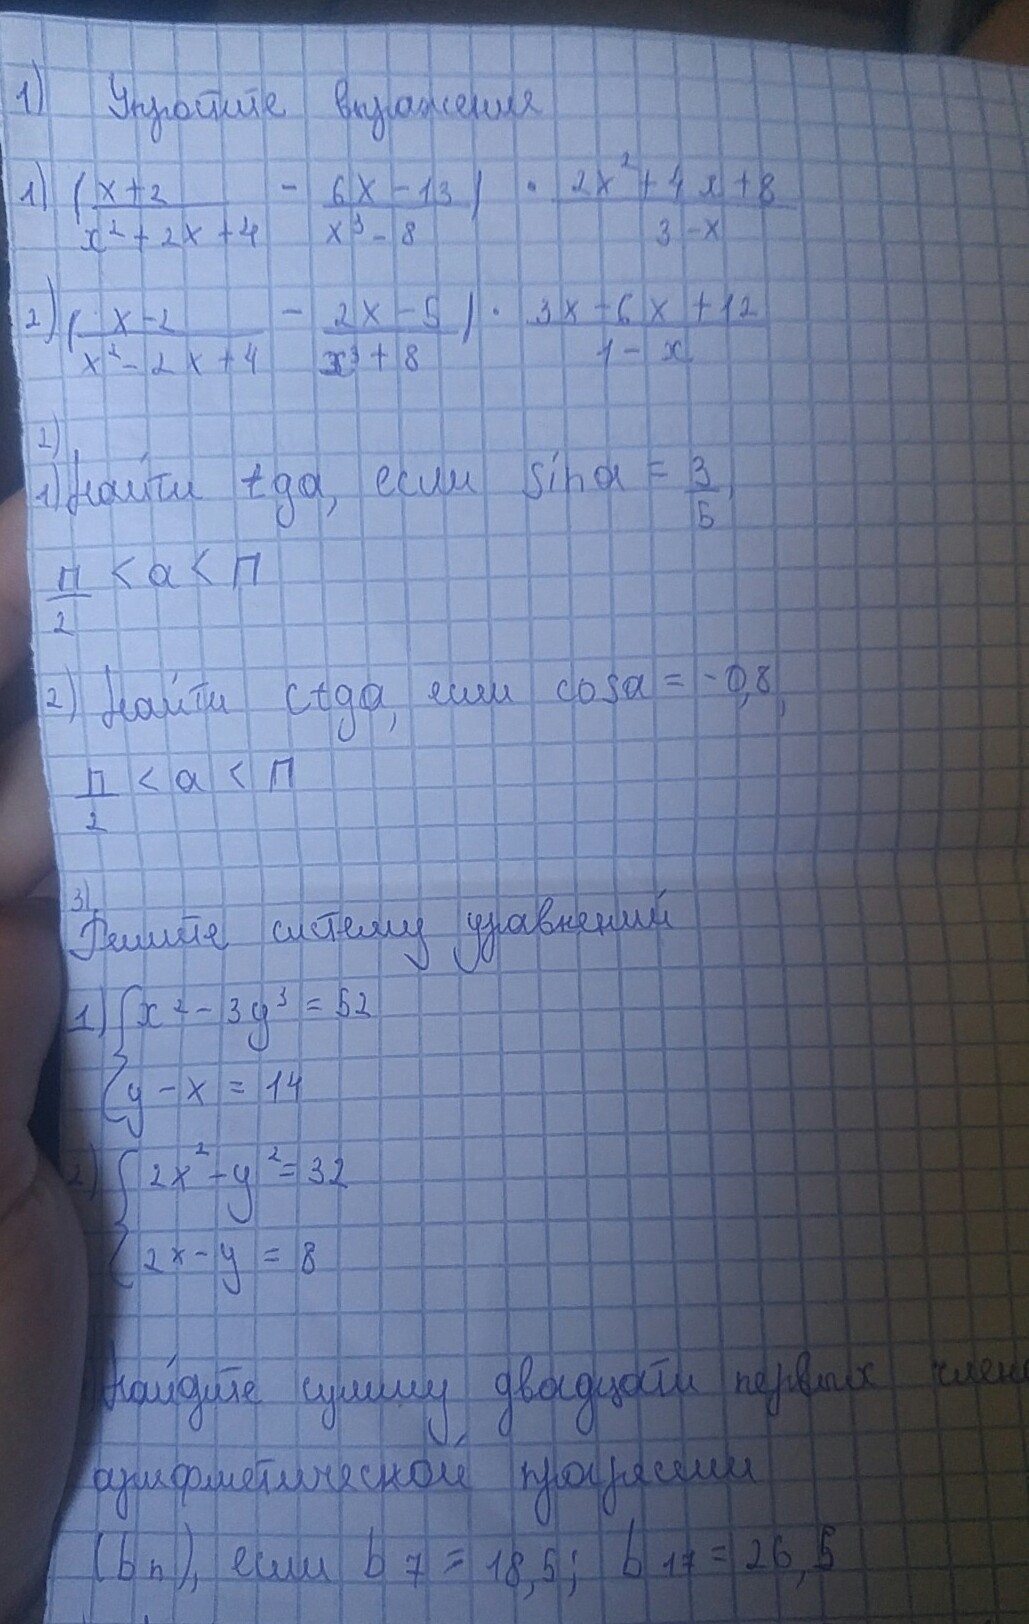 1) Упростите выражения
1) (x+2 / x²+2x+4 - 6x-13 / x³-8) · 2x²+4x+8 / 3-x
2) (x-2 / x²-2x+4 - 2x-5 / x³+8) · 3x-6x+12 / 1-x
2)
1) Найти tga, если sina = 3/5,
п/2 < a < п
2) Найти ctga, если cosa = -0,8,
п/2 < a < п
3)
Решите систему уравнений
1) { x²-3y³=52
y-x=14
2) { 2x²-y²=32
2x-y=8
Найдите сумму двадцати первых член
арифметической прогрессии
(bn), если b7=18,5; b17=26,5